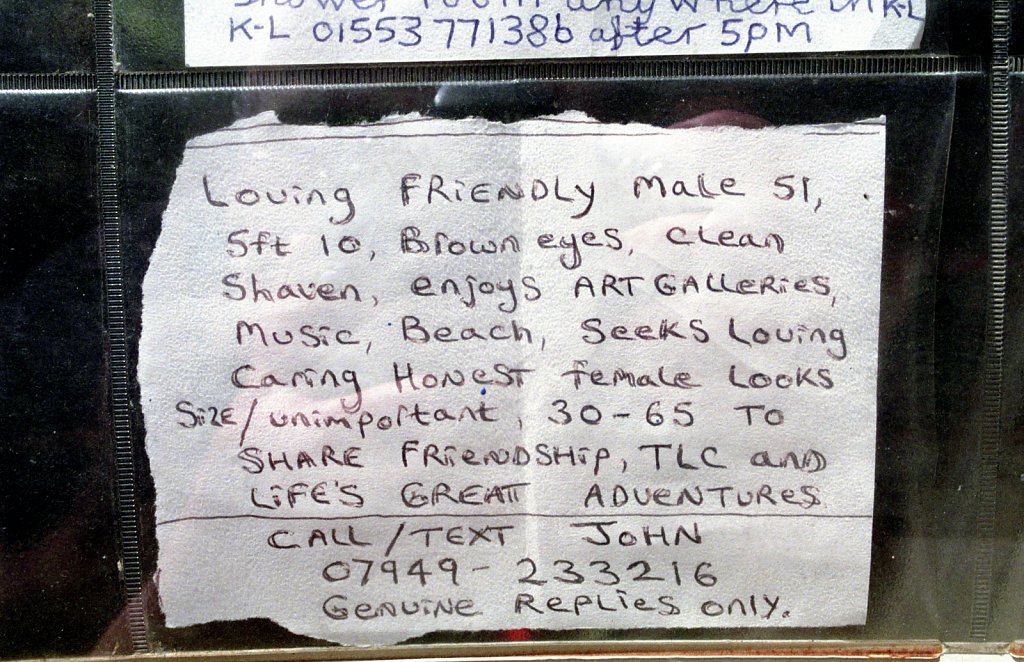 shower room anywhere in K-L
K-L 01553 771386 after 5pm
Loving FRiENDLy male 51,
5ft 10, Brown eyes, clean
Shaven, enjoys ART GALLERies,
Music, Beach, Seeks Loving
Caring HONEST female Looks
SiZE/unimportant, 30-65 TO
SHARE FRiENDSHip, TLC and
LiFE'S GREAT ADVENTURES
CALL/TEXT JOHN
07949-233216
GENUiNE REPLiES only.